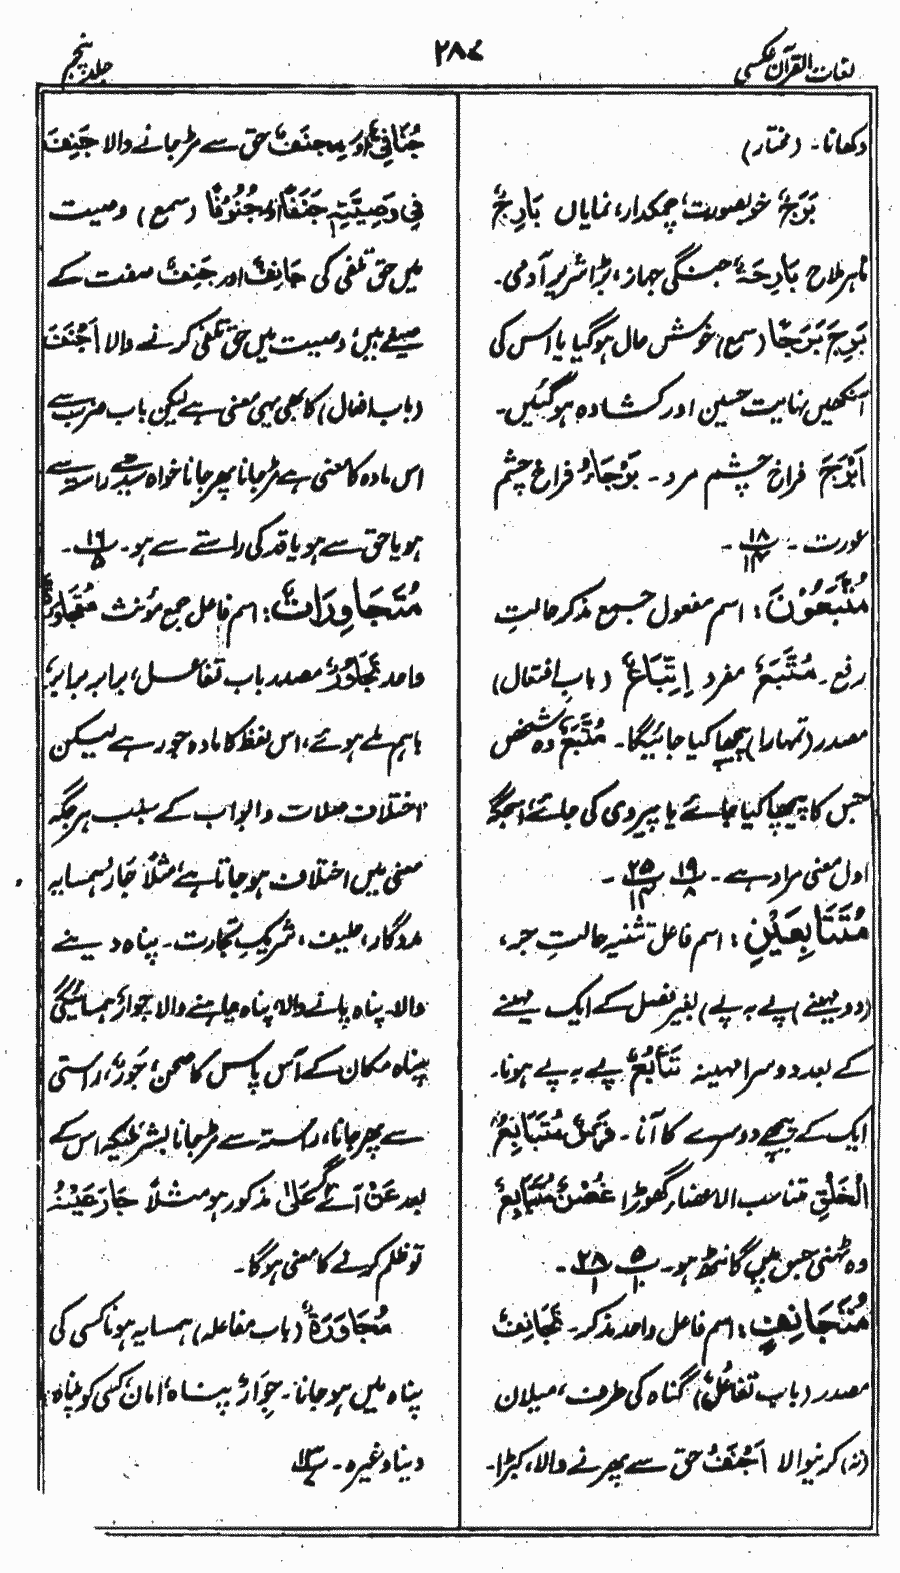 لغات القرآن عکسی
۲۸۷
جلد پنجم
دکھانا۔ (مختار)
بَرَجٌ خوبصورت، چمکدار، نمایاں بَارِجٌ
ماہر ملاح بَارِجَۃٌ جنگی جہاز، بڑا شریر آدمی۔
بَرِجَ بَرَجًا (سمع) خوش حال ہوگیا یا اس کی
آنکھیں نہایت حسین اور کشادہ ہوگئیں۔
اَبْرَجُ فراخ چشم مرد۔ بَرْجَاءُ فراخ چشم
عورت ۔ ۱۸/۱۴ ۔
مُتَّبَعُوْنَ : اسم مفعول جمع مذکر حالتِ
رفع۔ مُتَّبَعٌ مفرد اِتِّبَاعٌ (بابِ افتعال)
مصدر (تمہارا) پیچھا کیا جائیگا۔ مُتَّبَعٌ وہ شخص
جس کا پیچھا کیا جائے یا پیروی کی جائے، اسجگہ
اول معنی مراد ہے۔ ۱۹/۸ ۲۵/۱۴ ۔
مُتَتَابِعَیْنِ : اسم فاعل تثنیہ حالتِ جر،
(دو مہینے) پے بہ پے) بغیر فصل کے ایک مہینے
کے بعد دوسرا مہینہ تَتَابُعٌ پے بہ پے ہونا۔
ایک کے پیچھے دوسرے کا آنا۔ فَرَسٌ مُتَتَابِعُ
الْخَلْقِ متناسب الاعضاء گھوڑا غُصْنٌ مُتَتَابِعٌ
وہ ٹہنی جس میں گانٹھ ہو۔ ۵/۱۰ ۲۸/۱ ۔
مُتَجَانِفٍ : اسم فاعل واحد مذکر۔ تَجَانُفٌ
مصدر (باب تفاعُلٌ) گناہ کی طرف، میلان
(نہ) کرنیوالا اَجْنَفُ حق سے پھرنے والا، کبڑا۔
جُنَافِیٌّ اور جَنَفٌ حق سے مڑجانے والا جَنِفَ
فِی وَصِیَّتِہٖ جَنَفًا اور جُنُوْفًا (سمع) وصیت
میں حق تلفی کی جَانِفٌ اور جَنِفٌ صفت کے
صیغے ہیں، وصیت میں حق تلفی کرنے والا اَجْنَفَ
(باب افعال) کا بھی یہی معنی ہے لیکن باب ضرب سے
اس مادہ کا معنی ہے مڑجانا پھر جانا خواہ سیدھے راستہ سے
ہو یا حق سے ہو یا قد کی راستے سے ہو۔ ۱۶/۵ ۔
مُتَجَاوِرَاتٌ : اسم فاعل جمع مؤنث مُتَجَاوِرَۃٌ
واحد تَجَاوُرٌ مصدر باب تفاعل، برابر برابر،
باہم ملے ہوئے، اس لفظ کا مادہ جور ہے لیکن
اختلاف صلات و ابواب کے سبب ہر جگہ
معنی میں اختلاف ہو جاتا ہے، مثلًا جَارٌ ہمسایہ
مددگار، حلیف، شریکِ تجارت۔ پناہ دینے
والا۔ پناہ پانے والا۔ پناہ چاہنے والا جِوَارٌ ہمسائیگی
پناہ مکان کے آس پاس کا صحن، جَوْرٌ، راستی
سے پھر جانا، راستہ سے مڑجانا بشرطیکہ اس کے
بعد عَنْ آئے گر عَلٰی مذکور ہو مثلاً جَارَ عَنْہُ
تو ظلم کرنے کا معنی ہوگا۔
مُجَاوَرَۃٌ (باب مفاعلہ) ہمسایہ ہونا کسی کی
پناہ میں ہوجانا۔ جِوَارٌ پناہ، امان، کسی کو پناہ
دینا وغیرہ۔ ۱۳/۷